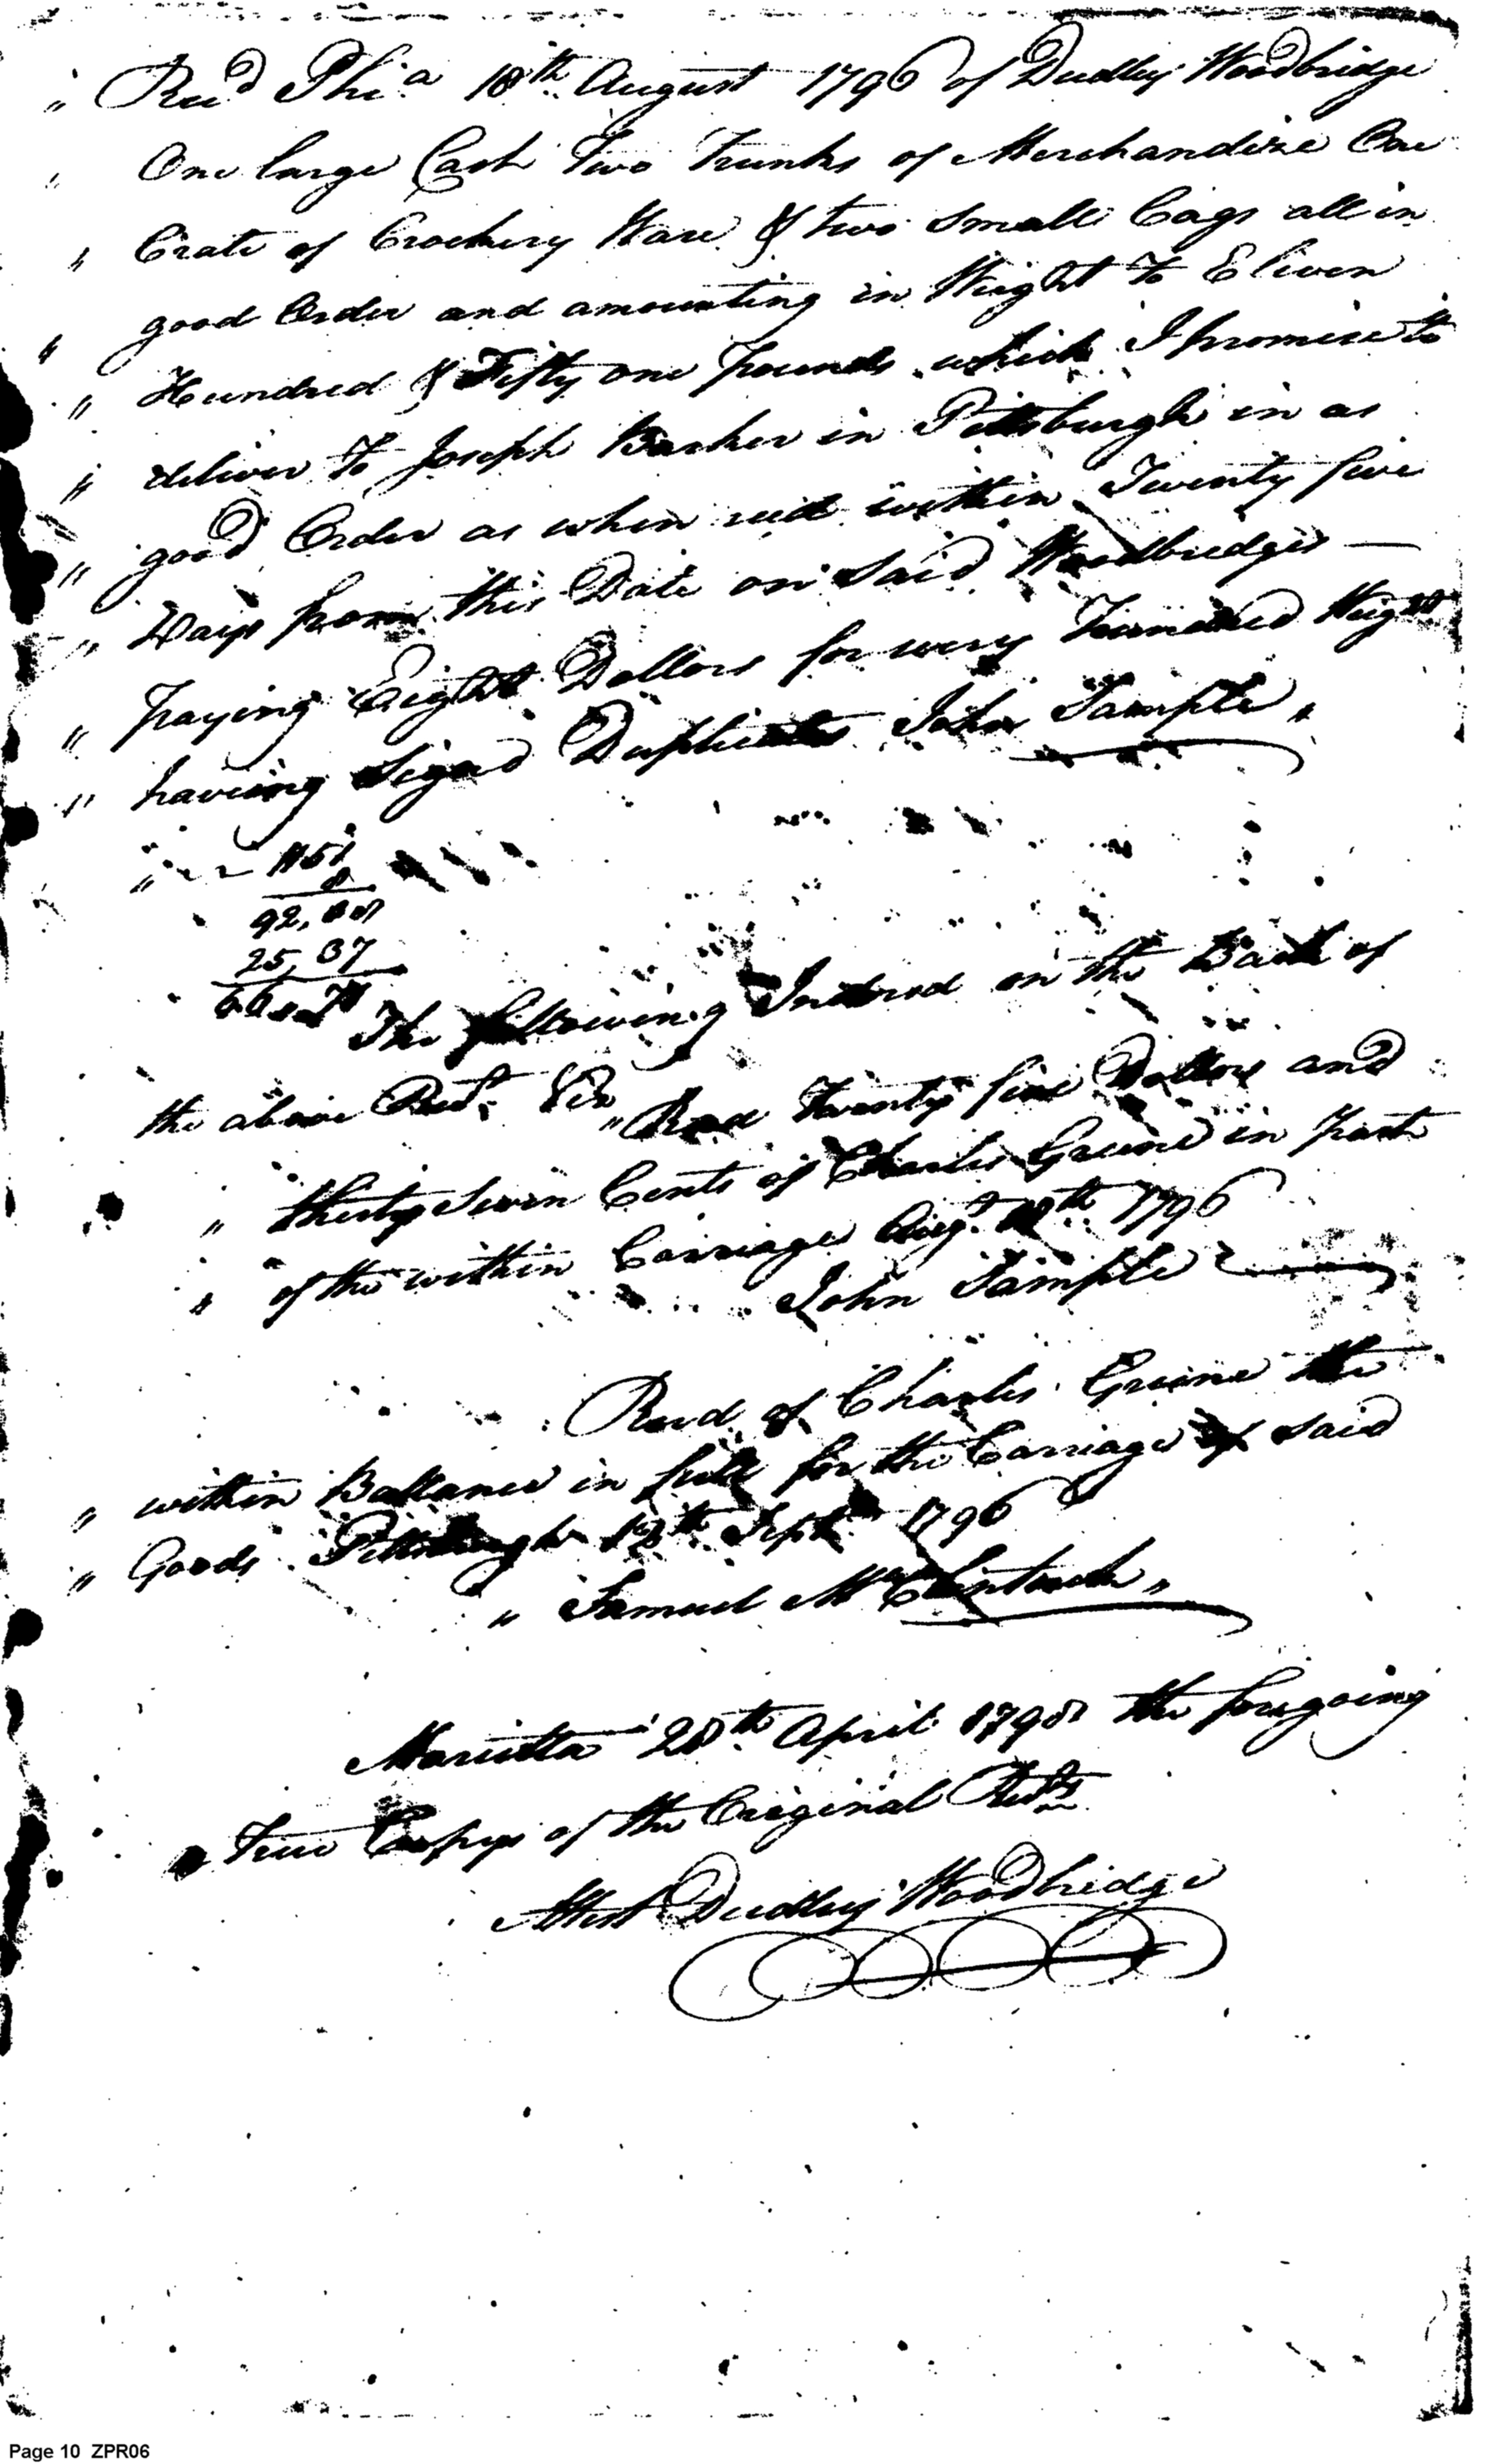 " Recd Phia 18th August 1796 of Dudley Woodbridge
" One large Cask Two Trunks of Merchandize One
" Crate of Crockery Ware & two small Cags all in
" good Order and amounting in Weight To Eleven
" Hundred & Fifty one pounds which I promise to
" deliver To Joseph Barker in Pittsburgh in as
" good Order as when recd within Twenty five
" Days from this Date on said Woodbridges —
" paying Eight Dollars for every Hundred Weight
" having Signd Duplicates John Sample "
" 1151
8
92,08
25,37
66,71 The following Indorsd on the Back of
the above Rect. Viz "Recd Twenty five Dollars and
" thirty Seven Cents of Charles Greene in part
" of the within Carriage Augt. 18th 1796
John Sample
Recvd of Charles Greene the
" within Ballance in full for the Carriage of said
" Goods Pittsburgh 13th Sept 1796
" Samuel McClintock "
Marietta 28th April 1798 the foregoing
True Copys of the Original Rects
Attest Dudley Woodbridge
Page 10 ZPR06